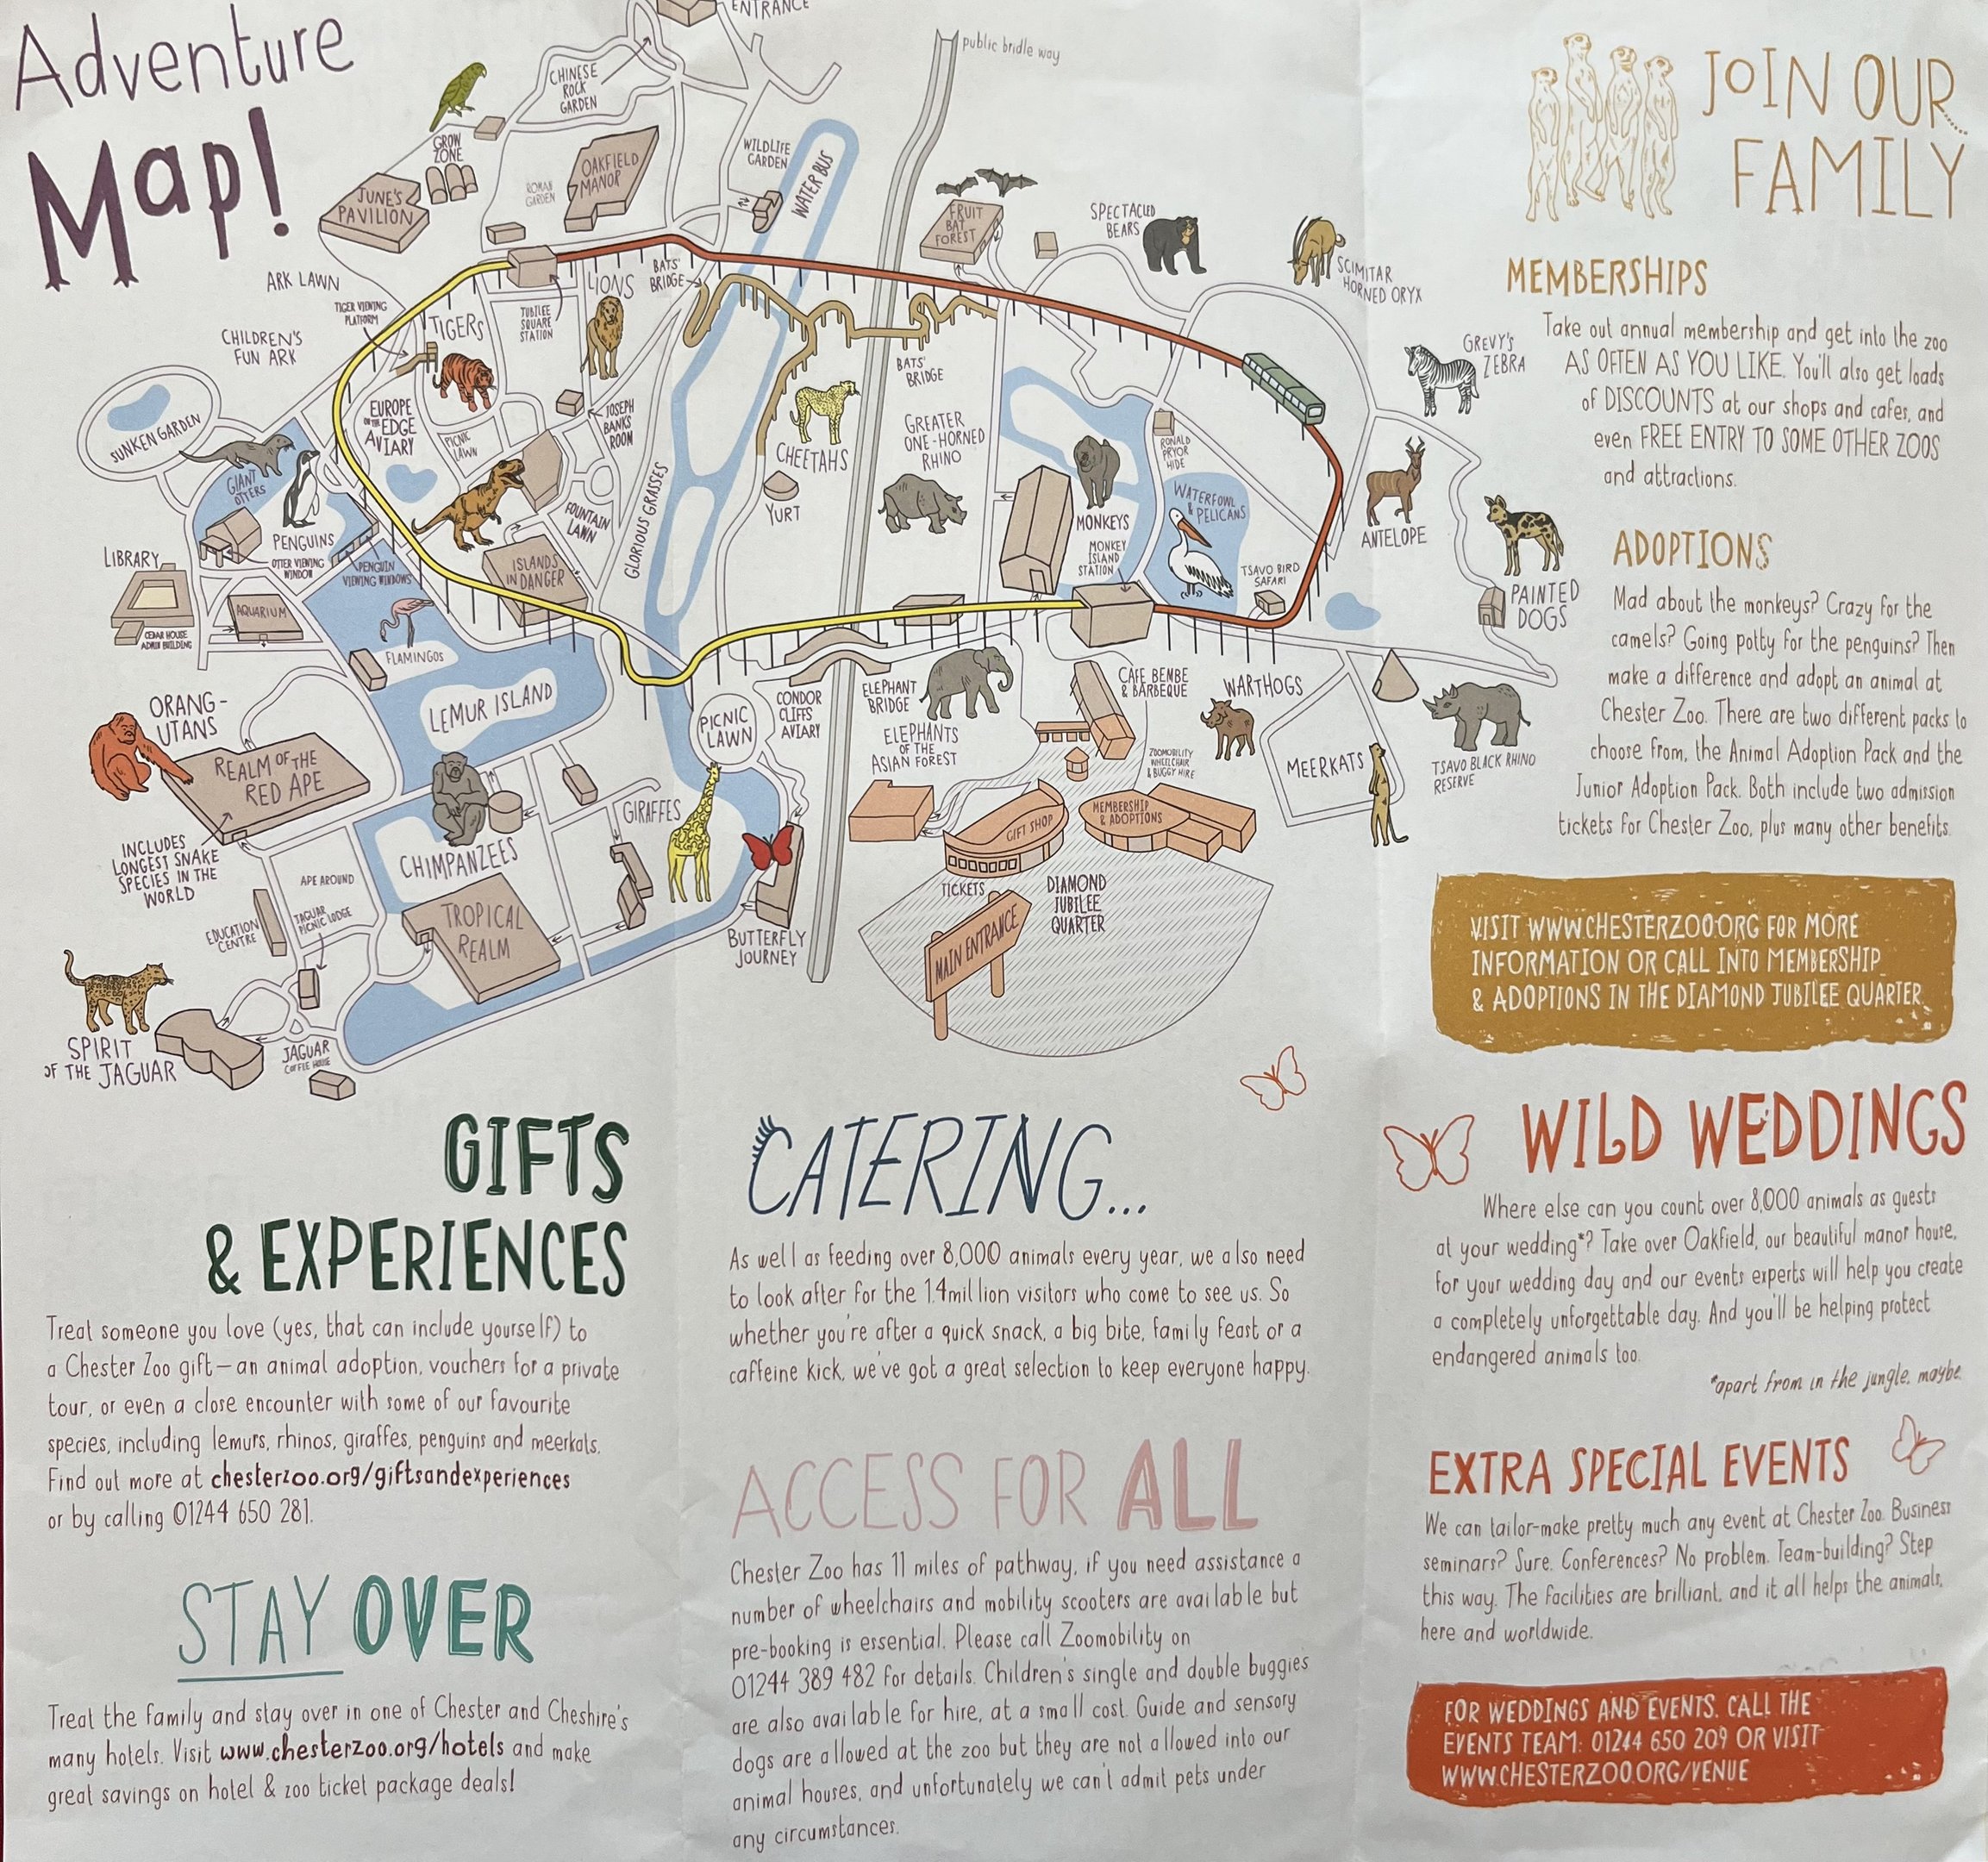 Adventure
Map!
ENTRANCE
public bridle way
CHINESE
ROCK
GARDEN
GROW
ZONE
JUNE'S
PAVILION
ROMAN
GARDEN
OAKFIELD
MANOR
WILDLIFE
GARDEN
WATER BUS
FRUIT
BAT
FOREST
SPECTACLED
BEARS
SCIMITAR
HORNED ORYX
ARK LAWN
TIGER VIEWING
PLATFORM
TIGERS
JUBILEE
SQUARE
STATION
LIONS
BATS'
BRIDGE
CHILDREN'S
FUN ARK
GREVY'S
ZEBRA
BATS'
BRIDGE
SUNKEN GARDEN
EUROPE
ON THE EDGE
AVIARY
PICNIC
LAWN
JOSEPH
BANKS
ROOM
CHEETAHS
GREATER
ONE-HORNED
RHINO
RONALD
PRYOR
HIDE
GIANT
OTTERS
YURT
MONKEYS
WATERFOWL
& PELICANS
ANTELOPE
FOUNTAIN
LAWN
GLORIOUS GRASSES
PENGUINS
OTTER VIEWING
WINDOW
PENGUIN
VIEWING WINDOWS
LIBRARY
CEDAR HOUSE
ADMIN BUILDING
AQUARIUM
ISLANDS
IN DANGER
MONKEY
ISLAND
STATION
TSAVO BIRD
SAFARI
PAINTED
DOGS
FLAMINGOS
ORANG-
UTANS
LEMUR ISLAND
PICNIC
LAWN
CONDOR
CLIFFS
AVIARY
ELEPHANT
BRIDGE
ELEPHANTS
OF THE
ASIAN FOREST
CAFE BEMBE
& BARBEQUE
WARTHOGS
ZOOMOBILITY
WHEELCHAIR
& BUGGY HIRE
MEERKATS
TSAVO BLACK RHINO
RESERVE
REALM OF THE
RED APE
INCLUDES
LONGEST SNAKE
SPECIES IN THE
WORLD
CHIMPANZEES
GIRAFFES
GIFT SHOP
MEMBERSHIP
& ADOPTIONS
APE AROUND
EDUCATION
CENTRE
JAGUAR
PICNIC LODGE
TROPICAL
REALM
BUTTERFLY
JOURNEY
TICKETS
DIAMOND
JUBILEE
QUARTER
MAIN ENTRANCE
SPIRIT
OF THE JAGUAR
JAGUAR
COFFEE HOUSE
JOIN OUR
FAMILY
MEMBERSHIPS
Take out annual membership and get into the zoo
AS OFTEN AS YOU LIKE. You'll also get loads
of DISCOUNTS at our shops and cafes, and
even FREE ENTRY TO SOME OTHER ZOOS
and attractions.
ADOPTIONS
Mad about the monkeys? Crazy for the
camels? Going potty for the penguins? Then
make a difference and adopt an animal at
Chester Zoo. There are two different packs to
choose from, the Animal Adoption Pack and the
Junior Adoption Pack. Both include two admission
tickets for Chester Zoo, plus many other benefits.
VISIT WWW.CHESTERZOO.ORG FOR MORE
INFORMATION OR CALL INTO MEMBERSHIP
& ADOPTIONS IN THE DIAMOND JUBILEE QUARTER.
GIFTS
& EXPERIENCES
Treat someone you love (yes, that can include yourself) to
a Chester Zoo gift–an animal adoption, vouchers for a private
tour, or even a close encounter with some of our favourite
species, including lemurs, rhinos, giraffes, penguins and meerkats.
Find out more at chesterzoo.org/giftsandexperiences
or by calling 01244 650 281.
STAY OVER
Treat the family and stay over in one of Chester and Cheshire's
many hotels. Visit www.chesterzoo.org/hotels and make
great savings on hotel & zoo ticket package deals!
CATERING...
As well as feeding over 8,000 animals every year, we also need
to look after for the 1.4million visitors who come to see us. So
whether you're after a quick snack, a big bite, family feast or a
caffeine kick, we've got a great selection to keep everyone happy.
ACCESS FOR ALL
Chester Zoo has 11 miles of pathway, if you need assistance a
number of wheelchairs and mobility scooters are available but
pre-booking is essential. Please call Zoomobility on
01244 389 482 for details. Children's single and double buggies
are also available for hire, at a small cost. Guide and sensory
dogs are allowed at the zoo but they are not allowed into our
animal houses, and unfortunately we can't admit pets under
any circumstances.
WILD WEDDINGS
Where else can you count over 8,000 animals as guests
at your wedding*? Take over Oakfield, our beautiful manor house,
for your wedding day and our events experts will help you create
a completely unforgettable day. And you'll be helping protect
endangered animals too.
*apart from in the jungle, maybe.
EXTRA SPECIAL EVENTS
We can tailor-make pretty much any event at Chester Zoo. Business
seminars? Sure. Conferences? No problem. Team-building? Step
this way. The facilities are brilliant, and it all helps the animals,
here and worldwide.
FOR WEDDINGS AND EVENTS, CALL THE
EVENTS TEAM: 01244 650 209 OR VISIT
WWW.CHESTERZOO.ORG/VENUE